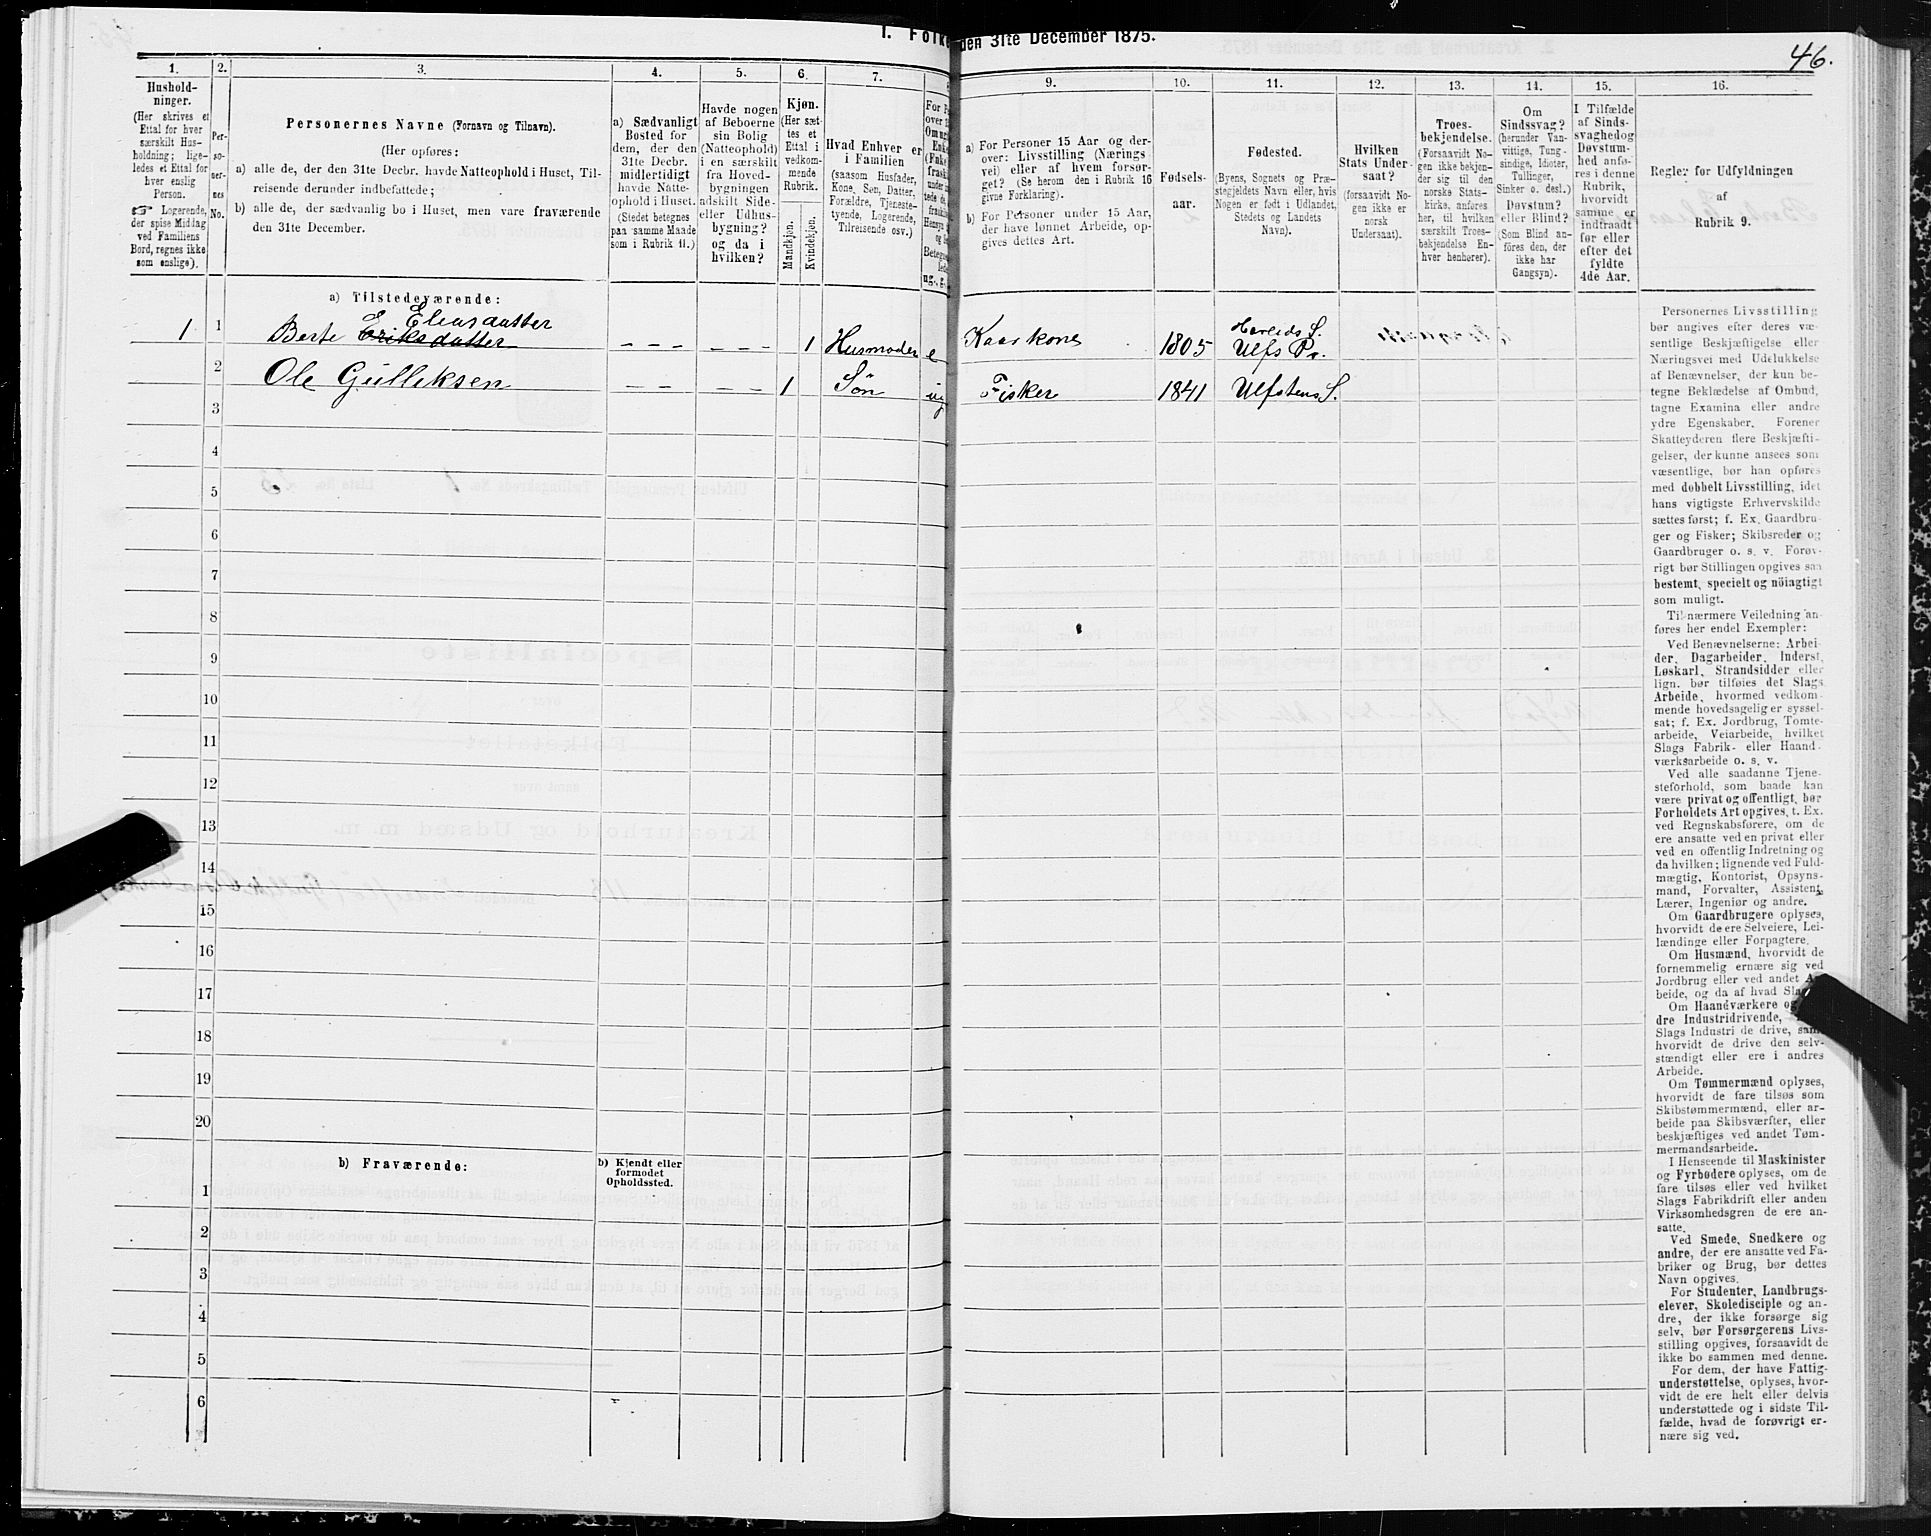 1. Folke
den 31te December 1875.
46.
1.
Hushold-
ninger.
(Her skrives et
Ettal for hver
særskilt Hus-
holdning; lige-
ledes et Ettal for
hver enslig
Person.
☞ Logerende,
der spise Middag
ved Familiens
Bord, regnes ikke
som enslige).
2.
Per-
so-
ner-
nes
No.
3.
Personernes Navne (Fornavn og Tilnavn).
(Her opføres:
a) alle de, der den 31te Decbr. havde Natteophold i Huset, Til-
reisende derunder indbefattede;
b) alle de, der sædvanlig bo i Huset, men vare fraværende
den 31te December.
4.
a) Sædvanligt
Bosted for
dem, der den
31te Decbr.
midlertidigt
havde Natte-
ophold i Huset.
(Stedet betegnes
paa samme Maade
som i Rubrik 11.)
5.
Havde nogen
af Beboerne
sin Bolig
(Natteophold)
i en særskilt
fra Hoved-
bygningen
adskilt Side-
eller Udhus-
bygning?
og da i
hvilken?
6.
Kjøn.
(Her sæt-
tes et
Ettal i
vedkom-
mende
Rubrik.
Mandkjøn.
Kvindekjøn.
7.
Hvad Enhver er
i Familien
(saasom Husfader,
Kone, Søn, Datter,
Forældre, Tjeneste-
tyende, Logerende,
Tilreisende osv.)
9.
a) For Personer 15 Aar og der-
over: Livsstilling (Nærings-
vei) eller af hvem forsør-
get? (Se herom den i Rubrik 16
givne Forklaring).
b) For Personer under 15 Aar,
der have lønnet Arbeide, op-
gives dettes Art.
10.
Fødsels-
aar.
11.
Fødested.
(Byens, Sognets og Præ-
stegjeldets Navn eller, hvis
Nogen er født i Udlandet,
Stedets og Landets
Navn).
12.
Hvilken
Stats Under-
saat?
(forsaavidt No-
gen ikke er
norsk
Undersaat).
13.
Troes-
bekjendelse.
(Forsaavidt No-
gen ikke bekjen-
der sig til den
norske Stats-
kirke, anføres
her, til hvilken
særskilt Troes-
bekjendelse En-
hver henhører).
14.
Om
Sindssvag?
(herunder Van-
vittige, Tung-
sindige, Idioter,
Tullinger,
Sinker o. desl.)
Døvstum?
eller Blind?
(Som Blind an-
føres den, der
ikke har
Gangsyn).
15.
I Tilfælde
af Sinds-
svaghed og
Døvstum-
hed anfø-
res i denne
Rubrik,
hvorvidt
samme er
indtraadt
før eller
efter det
fyldte
4de Aar.
16.
Regler for Udfyldningen
af
Rubrik 9.
a) Tilstedeværende:
Eliasdatter
1 1 Berte Eriksdatter - - - - - - 1 Husmoder e Kaarkone 1805 Hareids S. Ulfs Pr.
2 Ole Gulliksen - - - - 1 Søn ug Fisker 1841 Ulfstens S.
3
4
5
6
7
8
9
10
11
12
13
14
15
16
17
18
19
20
b) Fraværende:
b) Kjendt eller
formodet
Opholdssted.
1
2
3
4
5
6
Personernes Livsstilling
bør angives efter deres væ-
sentlige Beskjæftigelse eller
Næringsvei med Udelukkelse
af Benævnelser, der kun be-
tegne Beklædelse af Ombud,
tagne Examina eller andre
ydre Egenskaber. Forener
Skatteyderen flere Beskjæfti-
gelser, der kunne ansees som
væsentlige, bør han opføres
med dobbelt Livsstilling, idet
hans vigtigste Erhvervskilde
sættes først; f. Ex. Gaardbru-
ger og Fisker; Skibsreder og
Gaardbruger o. s. v. Forøv-
rigt bør Stillingen opgives saa
bestemt, specielt og nöiagtigt
som muligt.
Til nærmere Veiledning an-
føres her endel Exempler:
Ved Benævnelserne: Arbei-
der, Dagarbeider, Inderst,
Løskarl, Strandsidder eller
lign. bør tilføies det Slags
Arbeide, hvormed vedkom-
mende hovedsagelig er syssel-
sat; f. Ex. Jordbrug, Tomte-
arbeide, Veiarbeide, hvilket
Slags Fabrik- eller Haand-
værksarbeide o. s. v.
Ved alle saadanne Tjene-
steforhold, som baade kan
være privat og offentligt, bør
Forholdets Art opgives, t. Ex.
ved Regnskabsførere, om de
ere ansatte ved en privat eller
ved en offentlig Indretning og
da hvilken; lignende ved Fuld-
mægtig, Kontorist, Opsyns-
mand, Forvalter, Assistent,
Lærer, Ingeniør og andre.
Om Gaardbrugere oplyses,
hvorvidt de ere Selveiere, Lei-
lændinge eller Forpagtere.
Om Husmænd, hvorvidt de
fornemmelig ernære sig ved
Jordbrug eller ved andet Ar-
beide, og da af hvad Slags
Om Haandværkere og
dre Industridrivende,
Slags Industri de drive, samt
hvorvidt de drive den selv-
stændigt eller ere i andres
Arbeide.
Om Tømmermænd oplyses,
hvorvidt de fare tilsøs som
Skibstømmermænd, eller ar-
beide paa Skibsværfter, eller
beskjæftiges ved andet Tøm-
mermandsarbeide.
I Henseende til Maskinister
og Fyrbødere oplyses, om de
fare tilsøs eller ved hvilket
Slags Fabrikdrift eller anden
Virksomhedsgren de ere an-
satte.
Ved Smede, Snedkere og
andre, der ere ansatte ved Fa-
briker og Brug, bør dettes
Navn opgives.
For Studenter, Landbrugs-
elever, Skoledisciple og an-
dre, der ikke forsørge sig
selv, bør Forsørgerens Livs-
stilling opgives, forsaavidt de
ikke bo sammen med denne.
For dem, der have Fattig-
understøttelse, oplyses, hvor-
vidt de ere helt eller delvis
understøttede og i sidste Til-
fælde, hvad de forøvrigt er-
nære sig ved.